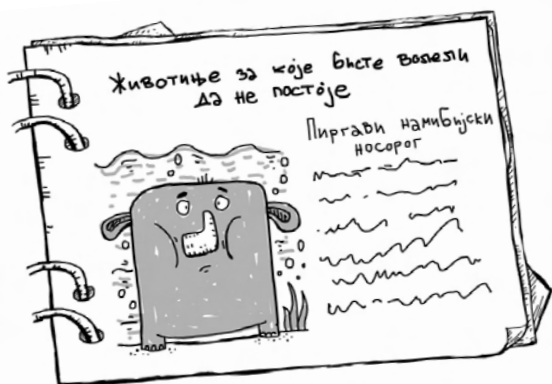 Животиње за које бисте волели
да не постоје
Пиргави намибијски
носорог